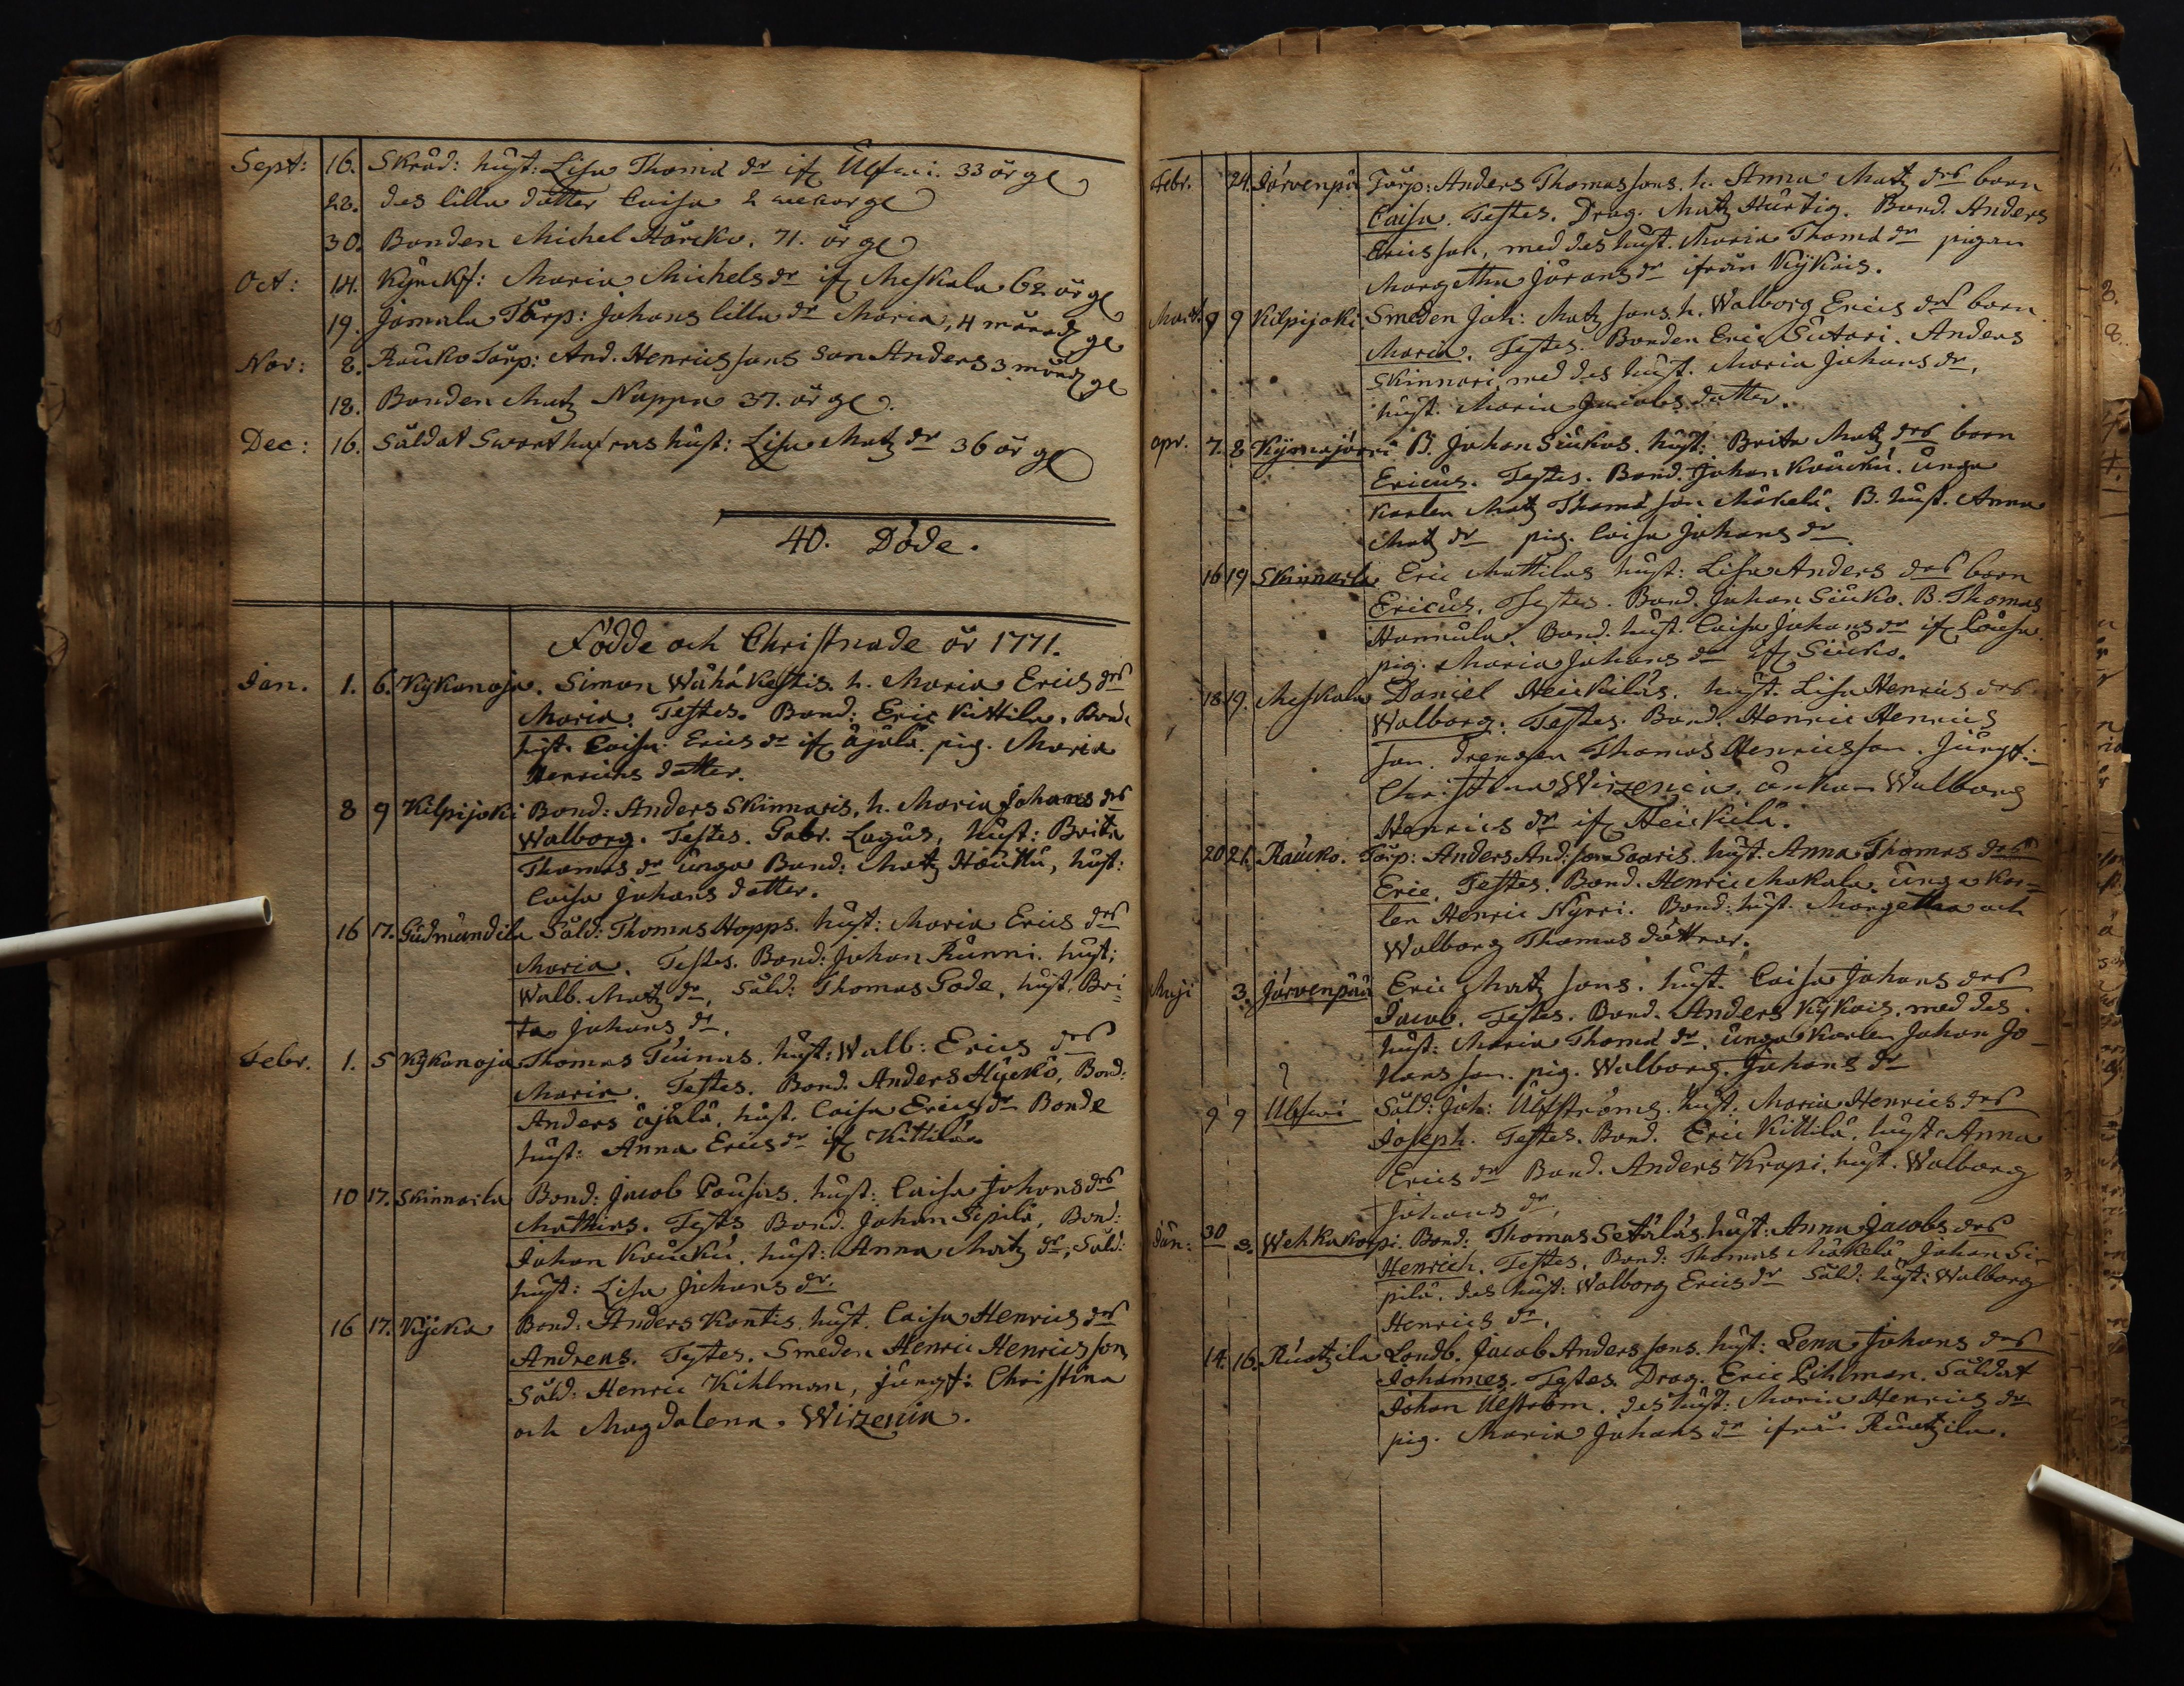 Sept: 16. Skräd: hust: Lisa Thomæ dr if. Ulfswi. 33 år gl
28. des lilla dotter Caisa 2 wekor gl
30. Bonden Michel Härcko. 71. år gl
Oct: 14. Maria Michels dr if. Meskala 62 år gl
19. Jamala Tårp: Johans lilla dr Maria, 4 månad gl
Nov: 8. Rauko Tårp: And. Henricssons son Anders 3 månad gl
18. Bonden Matz Nappa 37. år gl.
Dec: 16. Såldat hust: Lisa Matz dr 36 år gl
40. Döde.
Födde och Christnade år 1771.
Jan. 1. 6. Kÿkanoja. Simon Wähäkestis. h. Maria Erics drs
Maria. Testes. Bond: Eric Kittila. Bond
hust. Caisa Erics dr if. Äjälä. pig. Maria
Henrichs dotter.
8 9 Kilpijoki Bond: Anders Skinnaris, h. Maria Johans drs
Walborg. Testes. Gabr. Lagus, hust: Brita
Thomas dr unga Bond: Matz Houkku, hust:
Caisa Johans dotter.
16 17. Gudmundila Såld: Thomas Hopps. hust: Maria Erics drs
Maria. Testes. Bond: Johan Runni. hust:
Walb. Matz dr, Såld: Thomas Gode, hust. Bri=
ta Johans dr.
Febr. 1. 5 Kÿkanoja Thomas Tuinas. hust: Walb: Erics drs
Maria. Testes. Bond. Anders Hÿckö, Bond:
Anders Äjälä, hust. Caisa Erics dr Bonde
hust: Anna Erics dr if. Kittilä
10 17. Skinnarla Bond: Jacob Pousas. hust: Caisa Johans drs
Mathias. Testes Bond. Johan Sipilä, Bond:
Johan Koucku, hust: Anna Matz dr, Såld:
hust: Lisa Johans dr.
16 17. Kÿcka Bond: Anders Kontis, hust. Caisa Henrics drs
Andreas. Testes. Smeden Henric Henricsson
Såld: Henric Kihlman, jungf: Christina
och Magdalena. Wirzenia.
Febr. 24. Järvenpä Tårp: Anders Thomassons. h. Anna Matz drs barn
Caisa. Testes. Drag. Matz Hurtig. Bond. Anders
Ericsson, med des hust. Maria Thomæ dr pigan
Margetha Jörans dr ifrån Kÿkois.
Mart. 9 9 Kilpijoki Smeden Joh: Matzsons h. Walborg Erics drs barn
Maria. Testes. Bonden Eric Sutari. Anders
Skinnari, med des hust. Maria Johans dr,
hust. Maria Jacobs dotter.
apr. 7. 8 Kÿmajärvi B. Johan Siukos. hust: Brita Matz drs barn
Ericus. Testes. Bond. Johan Koucku. unga
karlen Matz Thomæ son Mäkelä. B. hust. Anna
Matz dr pig. Caisa Johans dr.
16 19 Skinnarla Eric Mattilas hust: Lisa Anders drs barn
Ericus. Testes. Bond. Johan Siuko. B. Thomas
Hannula. Bond. hust. Caisa Johans dr if. Pousa.
pig. Maria Johans dr if. Siuko.
18 19. Meskala Daniel Heickiläs. hust. Lisa Henrics drs
Walborg. Testes. Bond. Henric Henrics
son. drengen Thomas Henricsson. Jungf:
Christina Wirzenia. änkan Walborg
Henrics dr if. Heickilä.
20 21. Raucko. Tårp: Anders And:son Saaris. hust. Anna Thomas drs
Eric. Testes. Bond. Henric Makala. unga Kar=
len Henric Nÿrri. Bond: hust. Margetha och
Walborg Thomas döttrar.
Maji 3. Järvenpää Eric Matzsons. hust. Caisa Johans drs
Jacob. Testes. Bond. Anders Kÿkois, med des
hust: Maria Thomæ dr, unga Karlen Johan Jo-
hansson. pig. Walborg Johans dr
9 9 Ulfswi Såld: Joh: Ulfströms. hust. Maria Henrics drs
Joseph. Testes. Bond. Eric Kittilä. hust Anna
Erics dr Bond. Anders Krapi. hust. Walborg
Johans dr.
Jun: 30 2. Wehkakorpi. Bond: Thomas Setäläs. hust: Anna Jacobs drs
Henrich. Testes. Bond: Thomas Mäkelä Johan Si-
pilä. des hust: Walborg Erics dr Såld: hust: Walborg
Henrics dr.
14. 16. Ruotzila Landb. Jacob Anderssons. hust: Lena Johans drs
Johannes. Testes. Drag. Eric Pihlman. Såldat
Johan des hust: Maria Henrics dr
pig. Maria Johans dr ifrån Ruotzila.